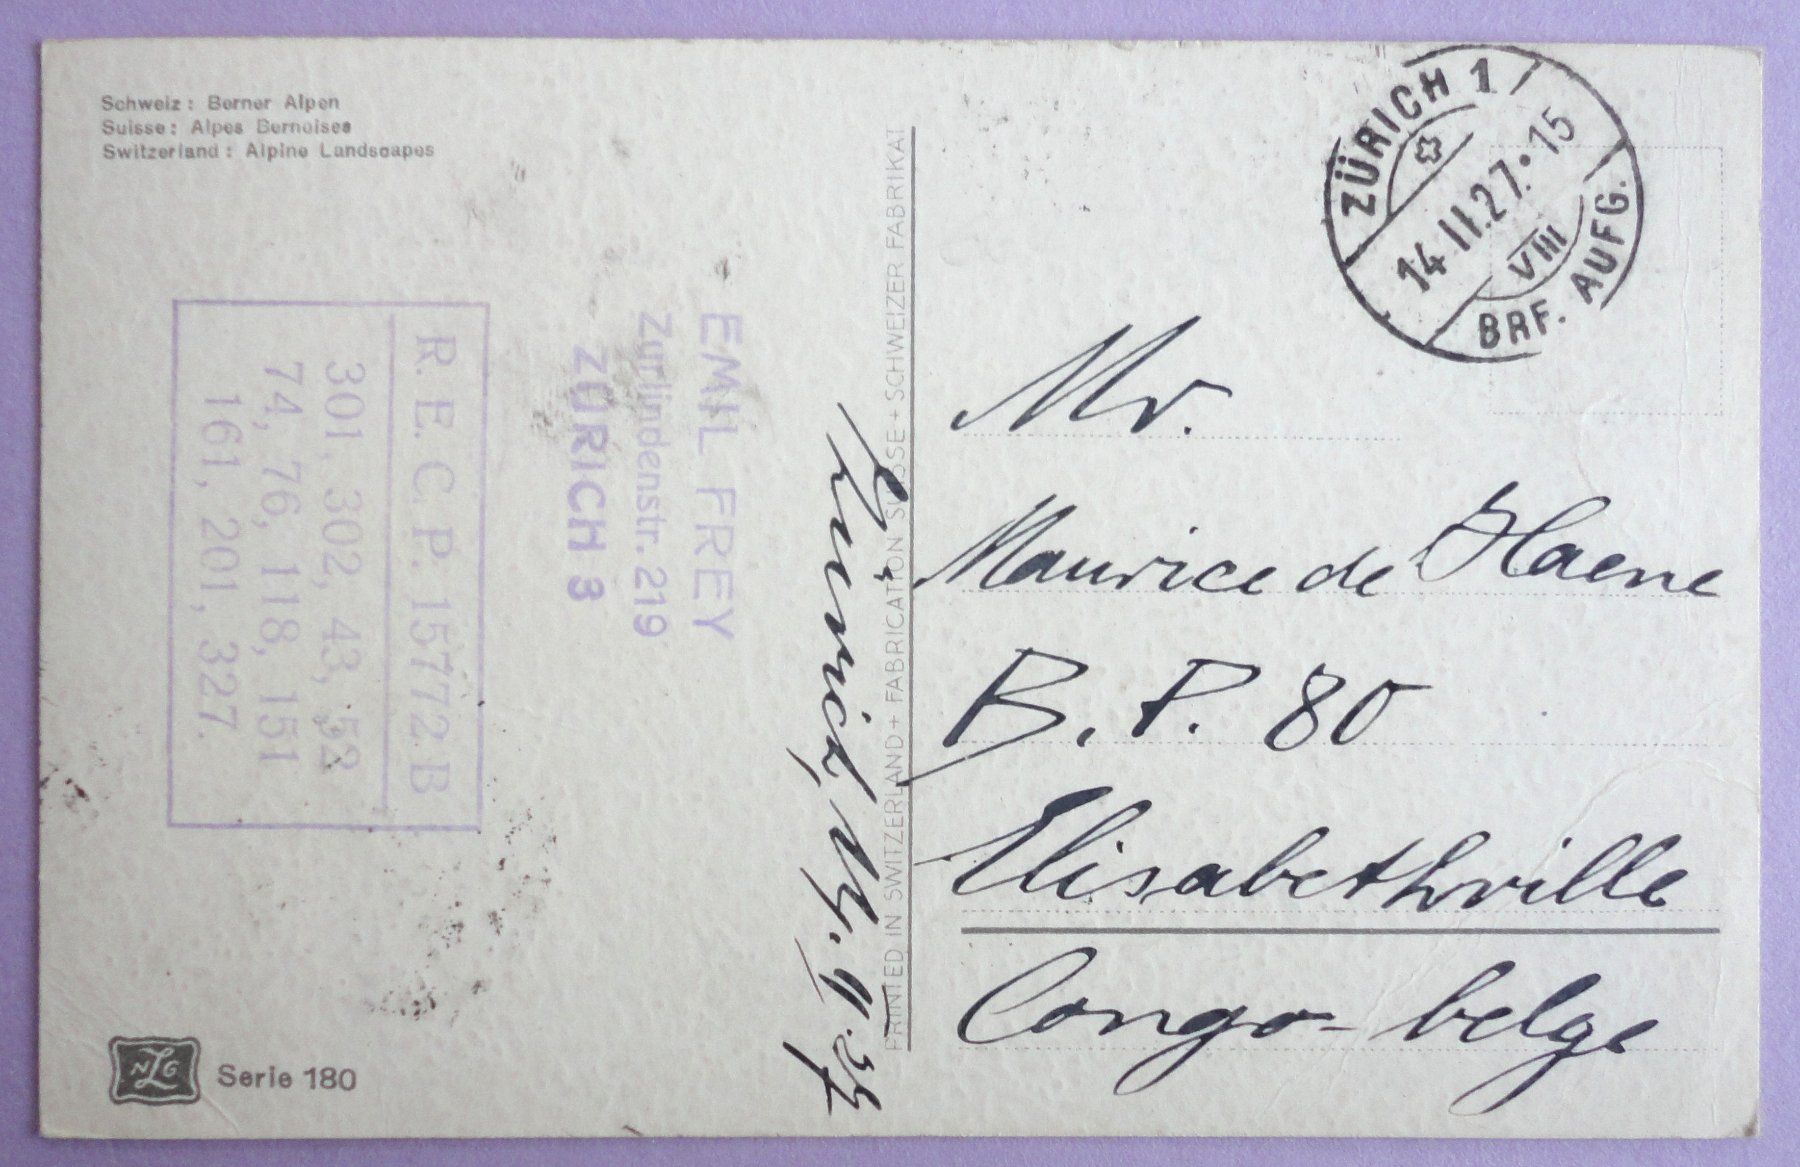 Schweiz: Berner Alpen
Suisse: Alpes Bernoises
Switzerland: Alpine Landscapes
ZÜRICH 1
14.II.27.•15
VIII
BRF. AUFG.
R. E. C. P. 15772 B
301, 302, 43, 52
74, 76, 118, 151
161, 201, 327.
EMIL FREY
Zurlindenstr. 219
ZÜRICH 3
Zürich, 14. II. 27
PRINTED IN SWITZERLAND + FABRICATION SUISSE + SCHWEIZER FABRIKAT
Mr.
Maurice de Haene
B. P. 80
Elisabethville
Congo-belge
NZG
Serie 180